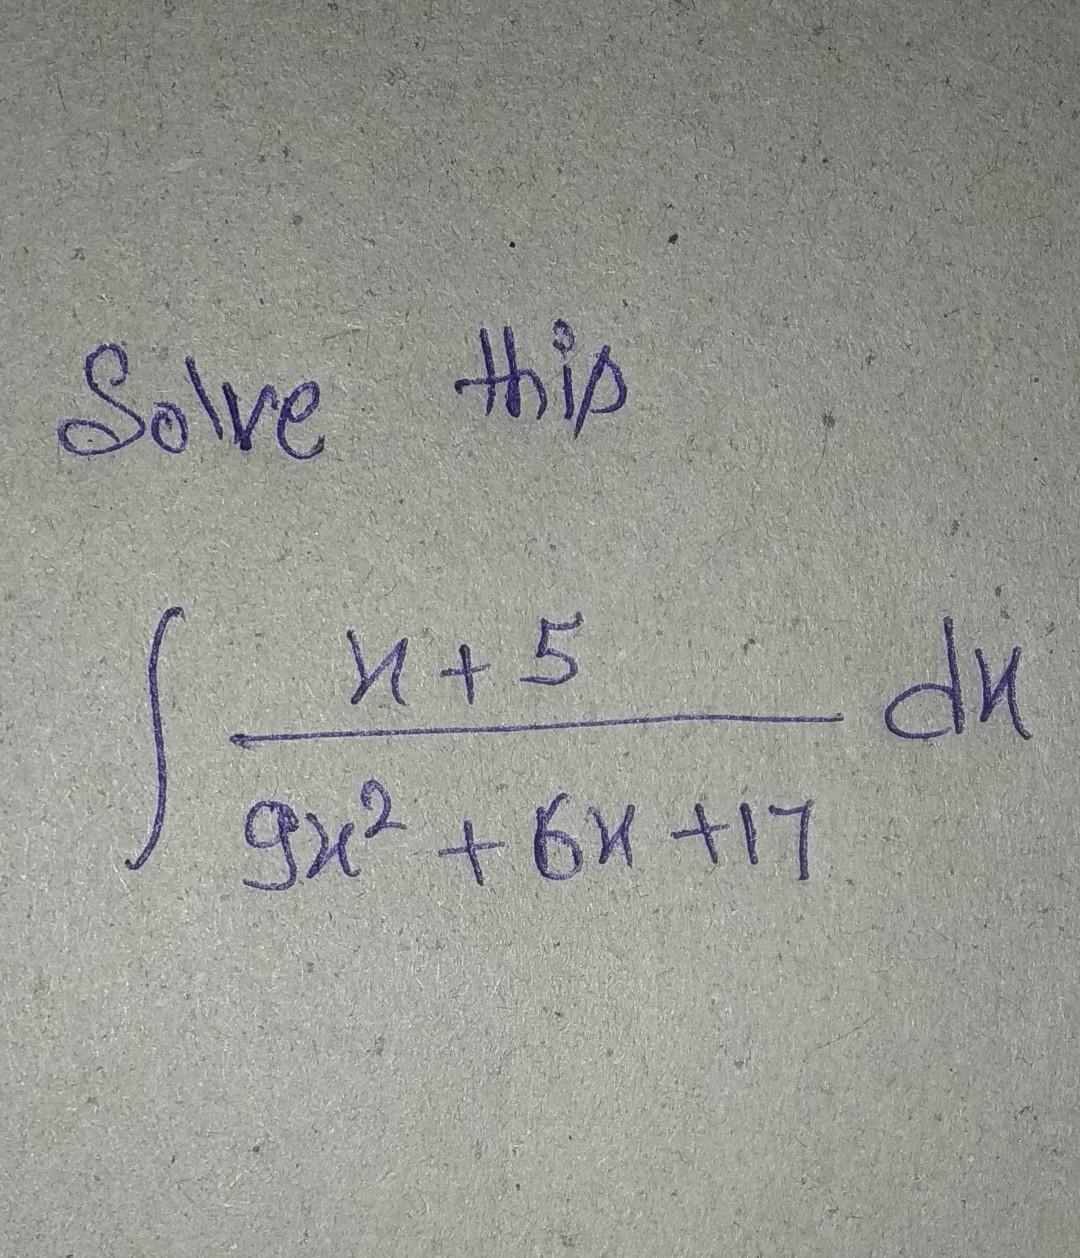 Solve this
∫ x + 5 / 9x² + 6x + 17 dx